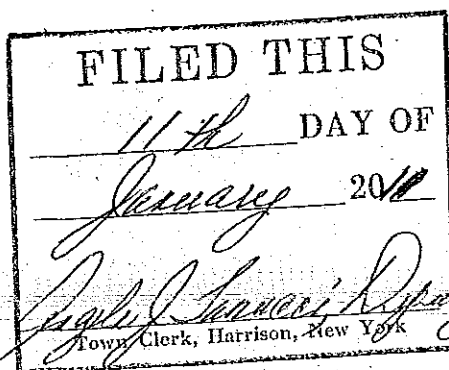 FILED THIS
11th DAY OF
January 2010
Town Clerk, Harrison, New York